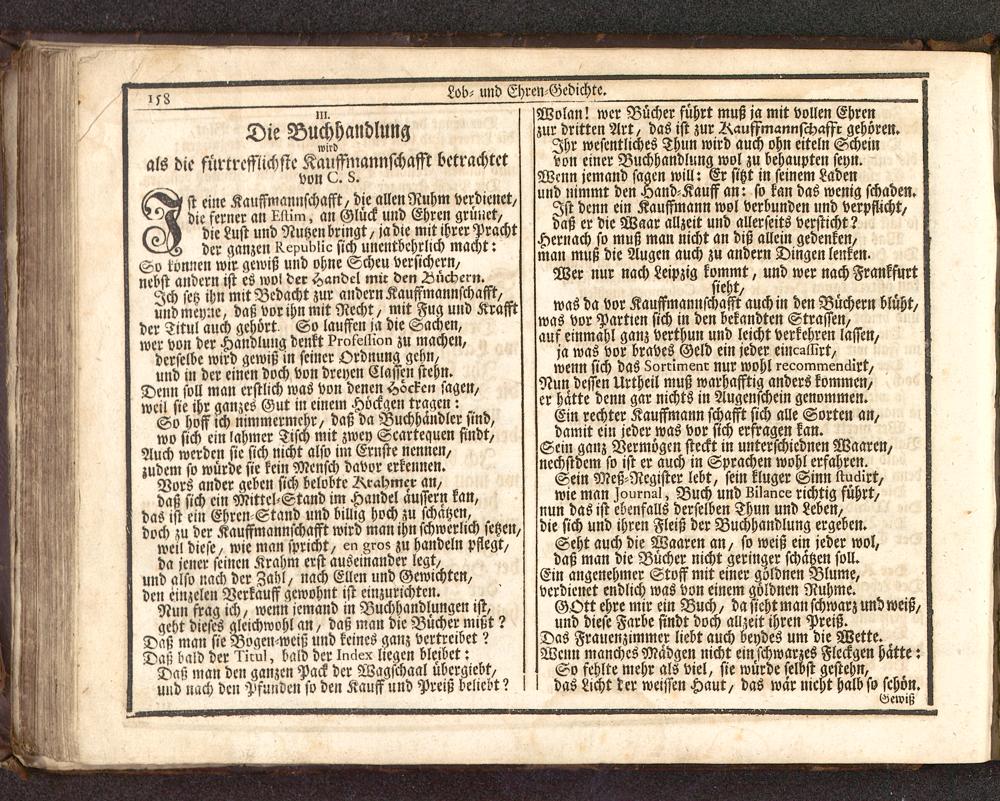 158
Lob- und Ehren-Gedichte.
III.
Die Buchhandlung
wird
als die fürtrefflichste Kauffmannschafft betrachtet
von C. S.
Ist eine Kauffmannschafft, die allen Ruhm verdienet,
die ferner an Estim, an Glück und Ehren grünet,
die Lust und Nutzen bringt, ja die mit ihrer Pracht
der ganzen Republic sich unentbehrlich macht:
So können wir gewiß und ohne Scheu versichern,
nebst andern ist es wol der Handel mit den Büchern.
Ich setz ihn mit Bedacht zur andern Kauffmannschafft,
und meyne, daß vor ihn mit Recht, mit Fug und Krafft
der Titul auch gehört. So lauffen ja die Sachen,
wer von der Handlung denkt Profession zu machen,
derselbe wird gewiß in seiner Ordnung gehn,
und in der einen doch von dreyen Classen stehn.
Denn soll man erstlich was von denen Höcken sagen,
weil sie ihr ganzes Gut in einem Höckgen tragen:
So hoff ich nimmermehr, daß da Buchhändler sind,
wo sich ein lahmer Tisch mit zwey Scartequen findt,
Auch werden sie sich nicht also im Ernste nennen,
zudem so würde sie kein Mensch davor erkennen.
Vors ander geben sich belobte Kråhmer an,
daß sich ein Mittel-Stand im Handel äussern kan,
das ist ein Ehren-Stand und billig hoch zu schätzen,
doch zu der Kauffmannschafft wird man ihn schwerlich setzen,
weil diese, wie man spricht, en gros zu handeln pflegt,
da jener seinen Krahm erst auseinander legt,
und also nach der Zahl, nach Ellen und Gewichten,
den einzelen Verkauff gewohnt ist einzurichten.
Nun frag ich, wenn jemand in Buchhandlungen ist,
geht dieses gleichwohl an, daß man die Bücher mißt?
Daß man sie Bogen-weiß und keines ganz vertreibet?
Daß bald der Titul, bald der Index liegen bleibet:
Daß man den ganzen Pack der Wagschaal übergiebt,
und nach den Pfunden so den Kauff und Preiß beliebt?
Wolan! wer Bücher führt muß ja mit vollen Ehren
zur dritten Art, das ist zur Kauffmannschafft gehören.
Ihr wesentliches Thun wird auch ohn eiteln Schein
von einer Buchhandlung wol zu behaupten seyn.
Wenn jemand sagen will: Er sitzt in seinem Laden
und nimmt den Hand-Kauff an: so kan das wenig schaden.
Ist denn ein Kauffmann wol verbunden und verpflicht,
daß er die Waar allzeit und allerseits versticht?
Hernach so muß man nicht an diß allein gedenken,
man muß die Augen auch zu andern Dingen lenken.
Wer nur nach Leipzig kommt, und wer nach Frankfurt
sieht,
was da vor Kauffmannschafft auch in den Büchern blüht,
was vor Partien sich in den bekandten Strassen,
auf einmahl ganz verthun und leicht verkehren lassen,
ja was vor braves Geld ein jeder eincassirt,
wenn sich das Sortiment nur wohl recommendirt,
Nun dessen Urtheil muß warhafftig anders kommen,
er hätte denn gar nichts in Augenschein genommen.
Ein rechter Kauffmann schafft sich alle Sorten an,
damit ein jeder was vor sich erfragen kan.
Sein ganz Vermögen steckt in unterschiednen Waaren,
nechstdem so ist er auch in Sprachen wohl erfahren.
Sein Meß-Register lebt, sein kluger Sinn studirt,
wie man Journal, Buch und Bilance richtig führt,
nun das ist ebenfalls derselben Thun und Leben,
die sich und ihren Fleiß der Buchhandlung ergeben.
Seht auch die Waaren an, so weiß ein jeder wol,
daß man die Bücher nicht geringer schätzen soll.
Ein angenehmer Stoff mit einer göldnen Blume,
verdienet endlich was von einem göldnen Ruhme.
GOtt ehre mir ein Buch, da sieht man schwarz und weiß,
und diese Farbe findt doch allzeit ihren Preiß.
Das Frauenzimmer liebt auch beydes um die Wette.
Wenn manches Mädgen nicht ein schwarzes Fleckgen hätte:
So fehlte mehr als viel, sie würde selbst gestehn,
das Licht der weissen Haut, das wär nicht halb so schön.
Gewiß